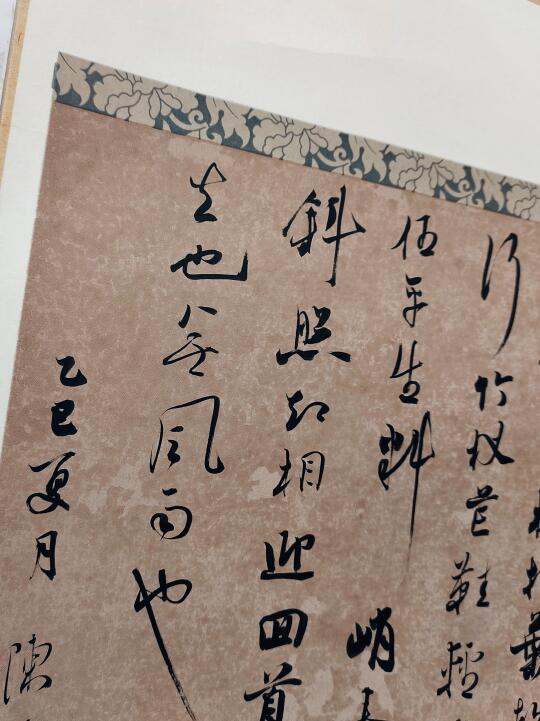 林打葉
行竹杖芒鞋輕
任平生料峭
斜照却相迎回首
去也無風雨也
乙巳夏月
陳